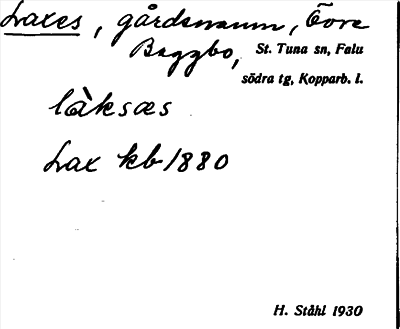 Laxes, gårdsnamn, Övre
Baggbo, St. Tuna sn, Falu
södra tg, Kopparb. l.
làksæs
Lax kb 1880
H. Ståhl 1930